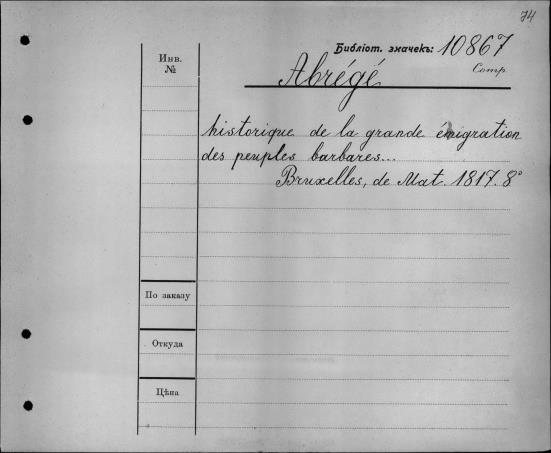 74
Библіот. значекъ: 10867
Comp
Инв.
№
Abrégé
historique de la grande émigration
des peuples barbares...
Bruxelles, de Mat. 1817. 8°
По заказу
Откуда
Цѣна